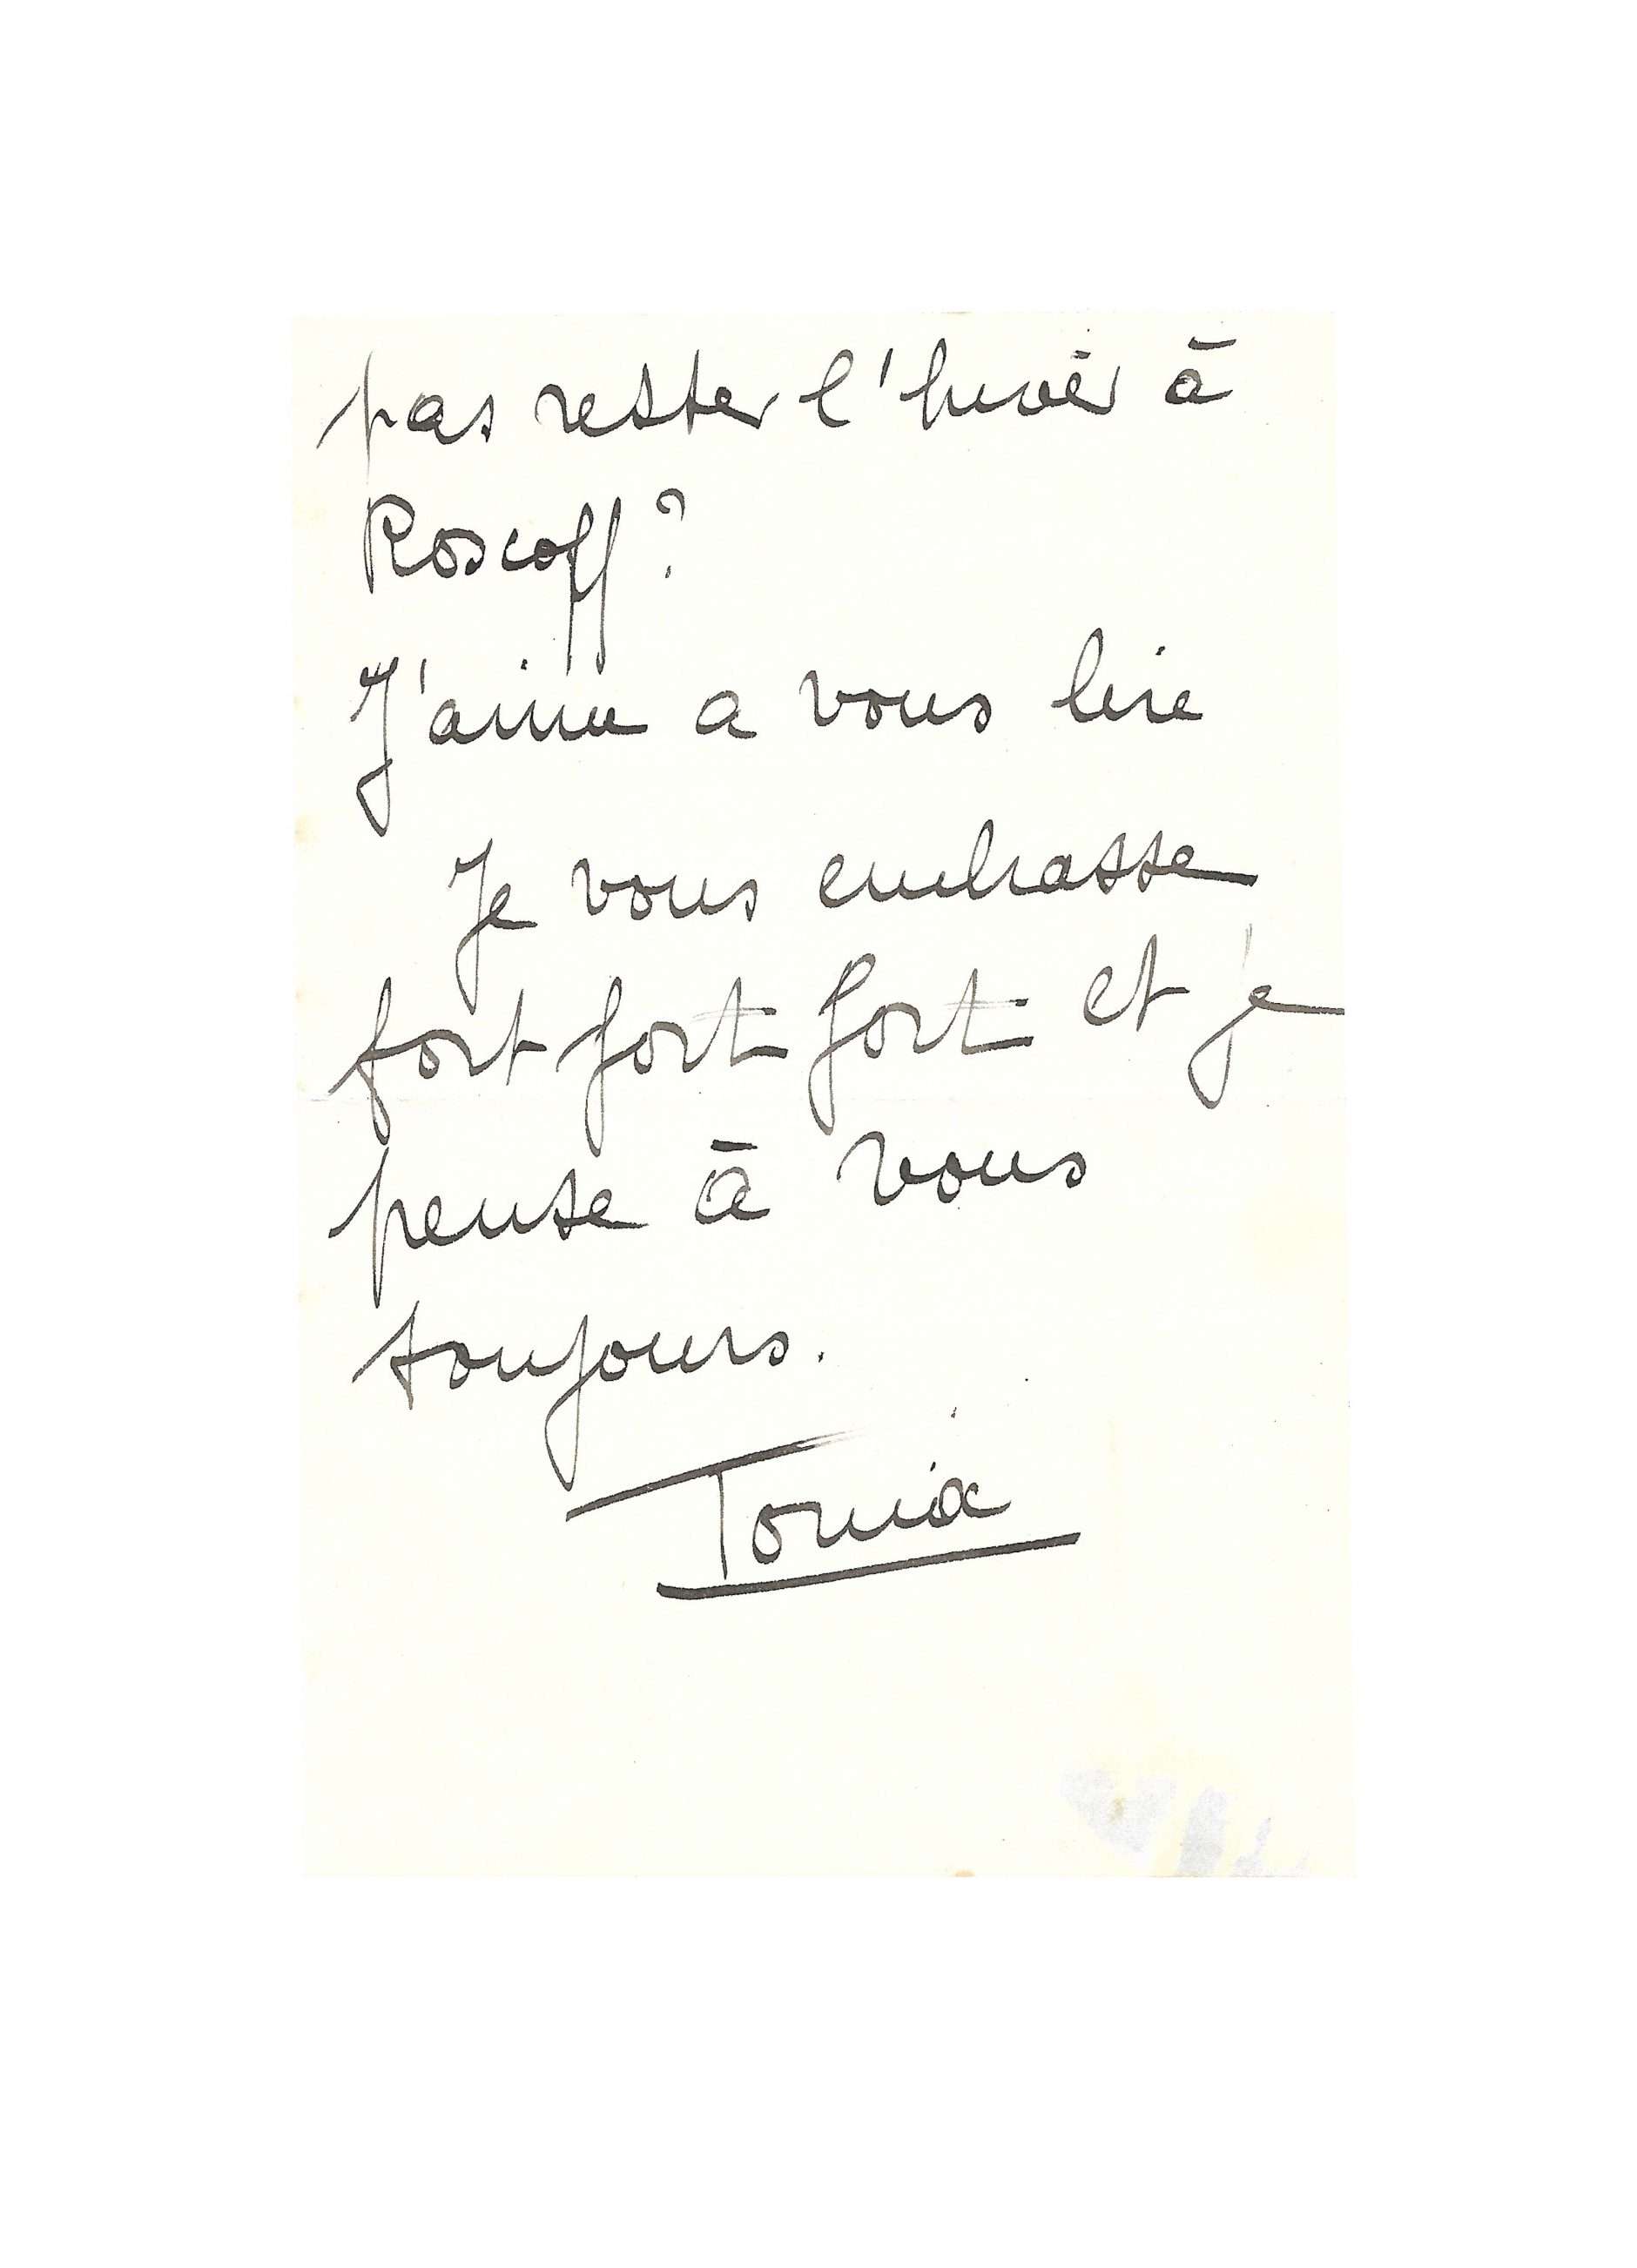 pas rester l'hivèr à
Roscoff ?
J'aime a vous lire
Je vous embrasse
fort fort fort et je
pense à vous
toujours.
Tonia